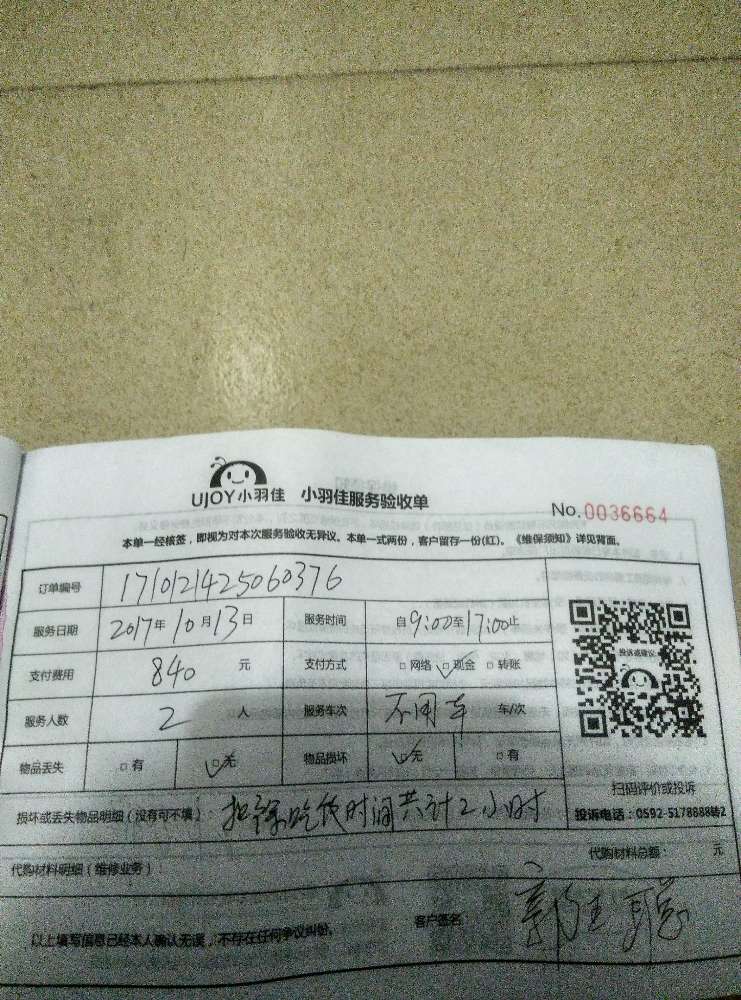 UJOY小羽佳 小羽佳服务验收单
No.0036664
本单一经核签，即视为对本次服务验收无异议。本单一式两份，客户留存一份(红)。《维保须知》详见背面。
订单编号 171012142506037​6
服务日期 2017年10月13日 服务时间 自9:00至17:00止
支付费用 840 元 支付方式 □网络 □现金 □转账
投诉或建议
服务人数 2 人 服务车次 不用车 车/次
物品丢失 □有 □无 物品损坏 □无 □有
扫码评价或投诉
损坏或丢失物品明细（没有可不填）：扣除吃饭时间共计2小时
投诉电话：0592-5178888转2
代购材料明细（维修业务）：
代购材料总额： 元
以上填写信息已经本人确认无误，不存在任何争议纠纷。
客户签名